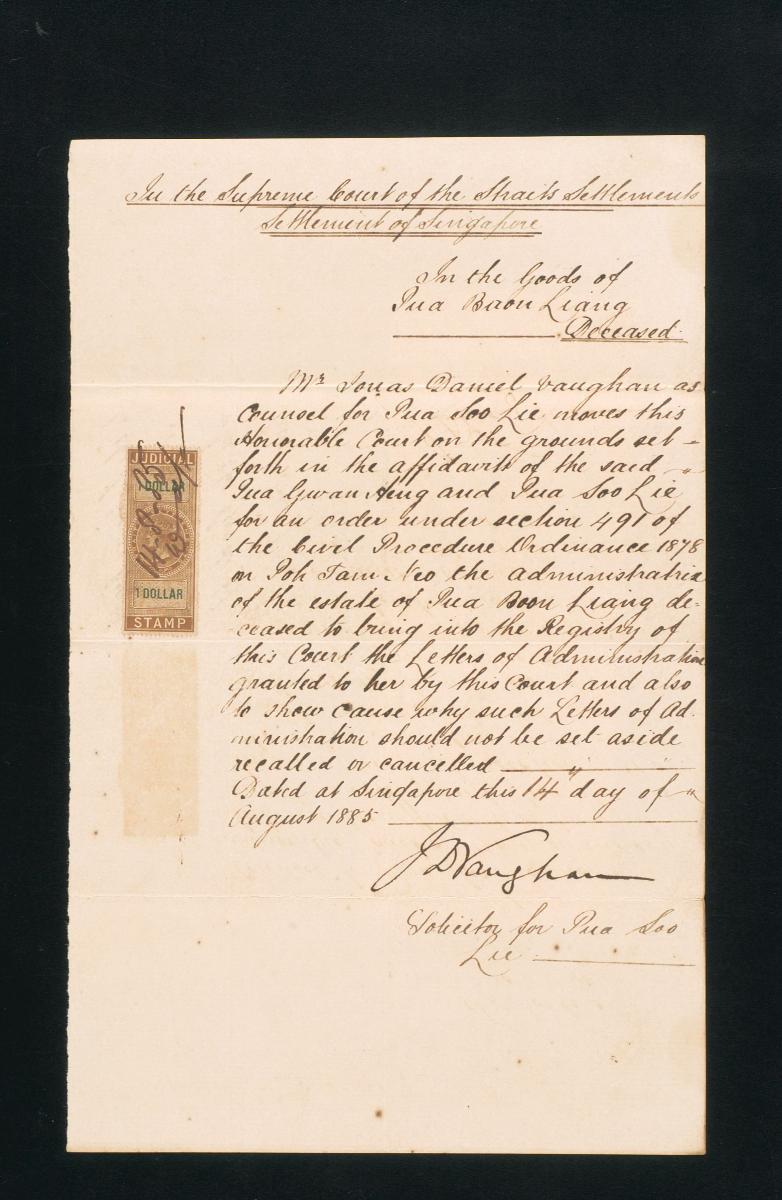 In the Supreme Court of the Straits Settlements
Settlement of Singapore
In the Goods of
Pua Boon Liang
Deceased
Mr Jonas Daniel Vaughan as
Counsel for Pua Soo Lie moves this
Honorable Court on the grounds set
forth in the affidavits of the said
Pua Gwan Heng and Pua Soo Lie
for an order under section 491 of
the Civil Procedure Ordinance 1878
on Poh Tam Neo the administratrix
of the estate of Pua Boon Liang de-
ceased to bring into the Registry of
this Court the Letters of Administration
granted to her by this Court and also
to show cause why such Letters of Ad-
ministration should not be set aside
recalled or cancelled
Dated at Singapore this 14th day of
August 1885
J D Vaughan
Solicitor for Pua Soo
Lie
JUDICIAL
1 DOLLAR
14-8-85
1 DOLLAR
STAMP